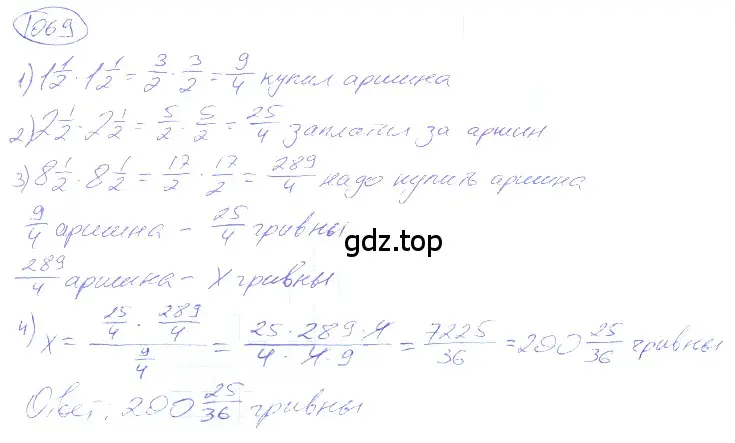 1069
1) 1 1/2 · 1 1/2 = 3/2 · 3/2 = 9/4 купил аршина
2) 2 1/2 · 2 1/2 = 5/2 · 5/2 = 25/4 заплатил за аршин
3) 8 1/2 · 8 1/2 = 17/2 · 17/2 = 289/4 надо купить аршина
9/4 аршина – 25/4 гривны
gdz.top
289/4 аршина – x гривны
4) x = (25/4 · 289/4)/(9/4) = (25 · 289 · 4)/(4 · 4 · 9) = 7225/36 = 200 25/36 гривны
Ответ: 200 25/36 гривны